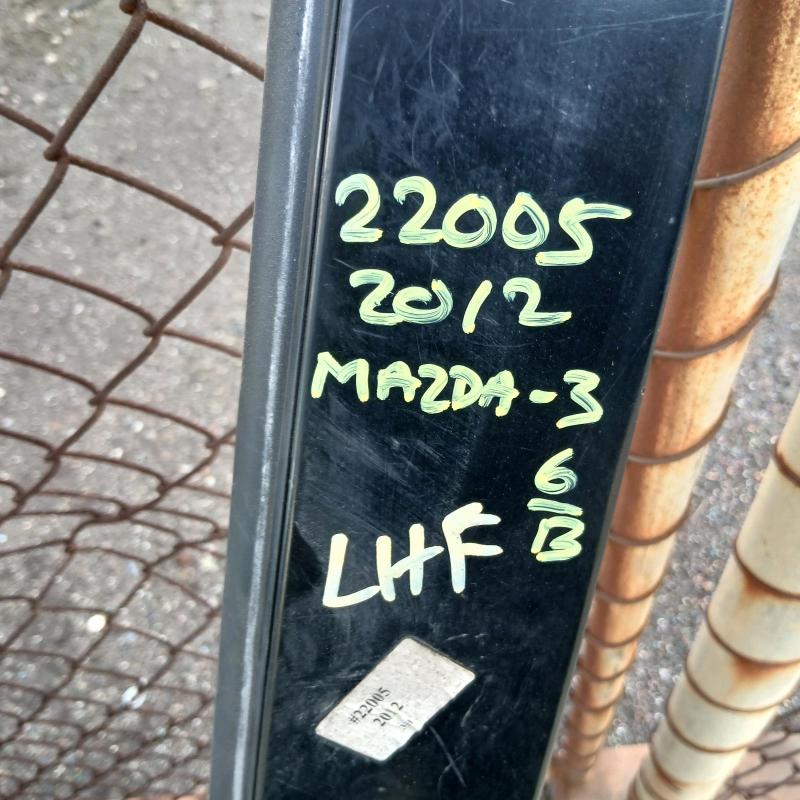 22005
2012
MAZDA-3
6
B
LHF
#22005
2012